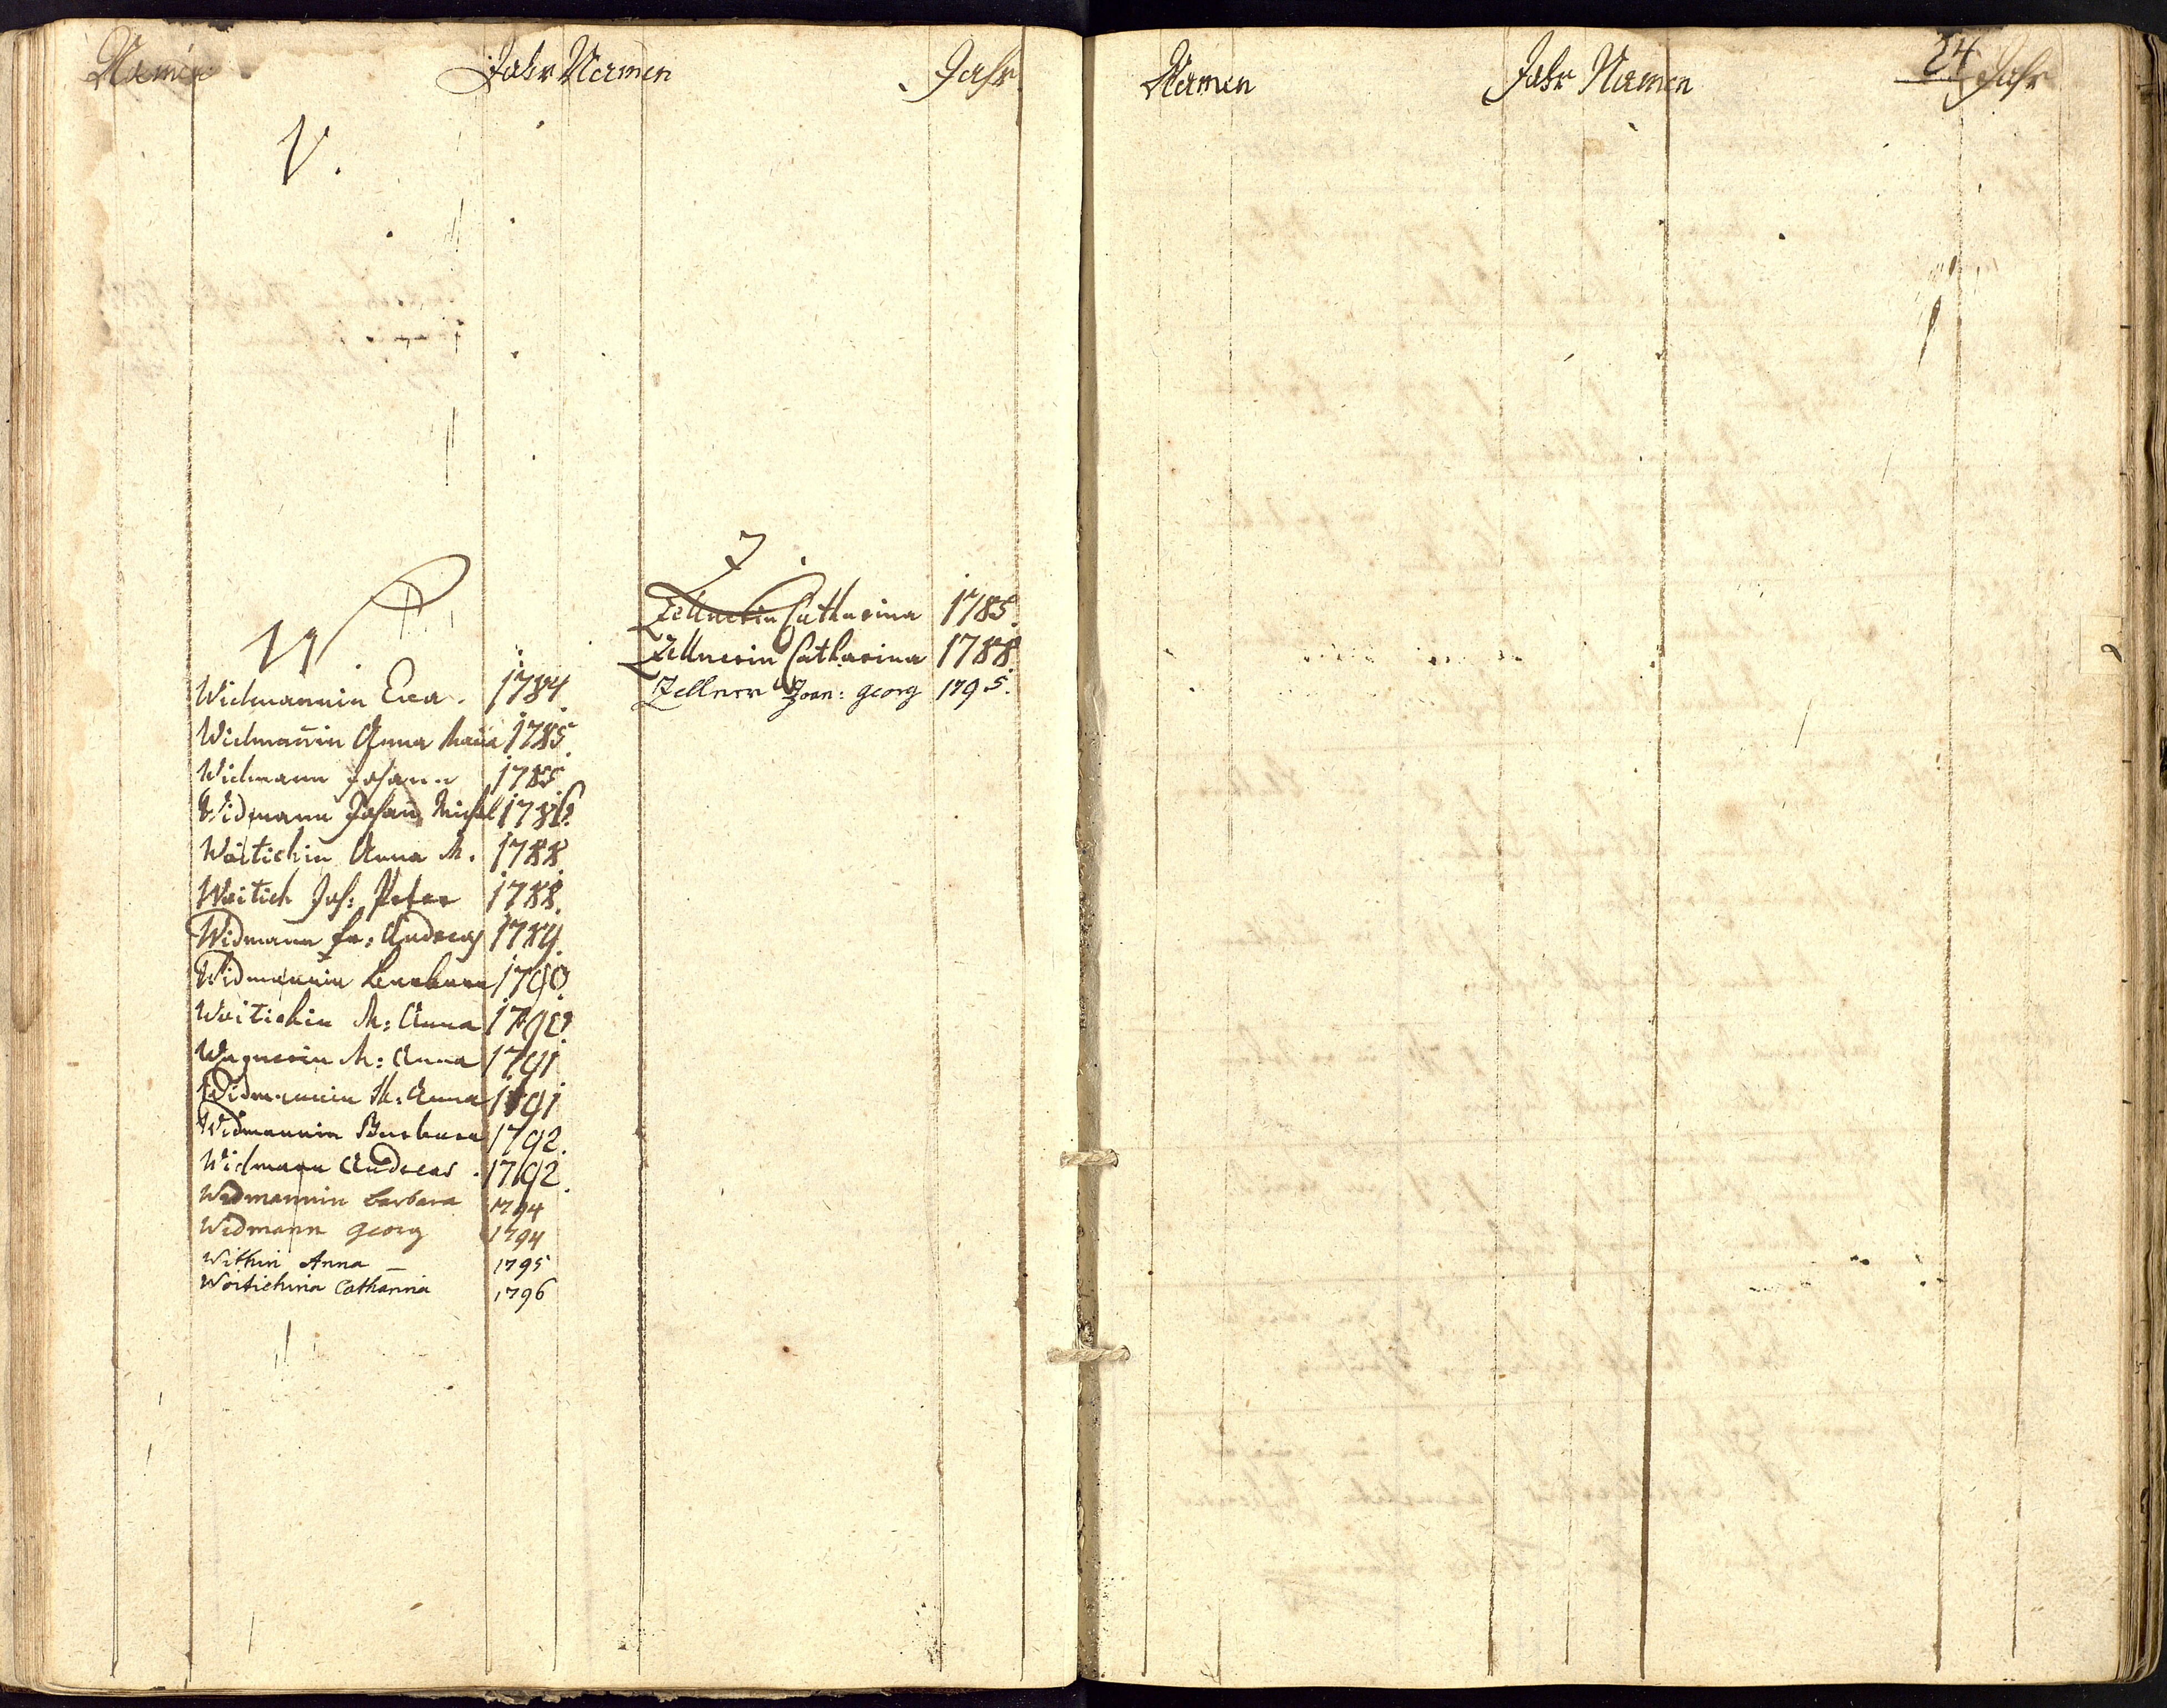 Namen Jahr Namen Jahr
V.
W.
Widmannin Eva. 1784.
Widman̄in Anna Maria 1785.
Widmann Johann 1785.
Widmann Johan̄ Michl 1786.
Woitichin Anna M. 1788.
Woitich Joh: Peter 1788.
Widmann Andreas 1789.
Widmannin Barbara 1790.
Woitichin M: Anna 1790.
Wagnerin M: Anna 1791.
Widmannin M: Anna 1791
Widmannin Barbara 1792.
Widmann Andreas. 1792.
Widmannin Barbara 1794
Widmann georg 1794
Within Anna 1795
Woitichina Catharina 1796
Z.
Zellnerin Catharina 1785.
Zellnerin Catharina 1788.
Zellner Joan: georg 1795.
24
Namen Jahr Namen Jahr